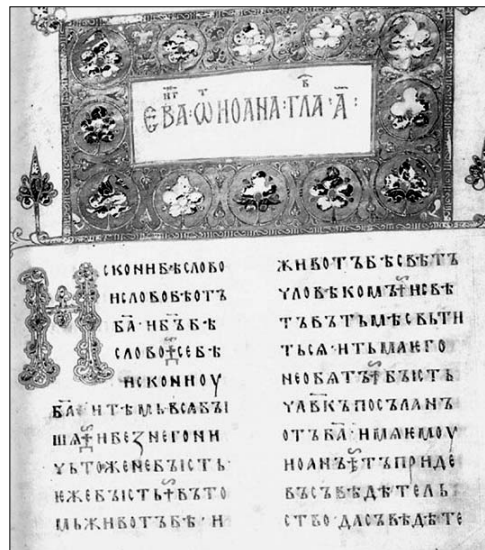 ЄВА·Ѿ ИОАНА·ГЛА·А҃:
ИСКОНИБѢСЛОВО
ИСЛОВОБѢОТЪ
БА҃·ИБ҃ЪБѢ
СЛОВО СЕБѢ
ИСКОНИОУ
БА҃·ИТѢМЬВСꙖБꙆ
ШѦ ИБЕЗНЕГОНИ
ЧЬТОЖЕНЕБꙆСТЬ·
ЕЖЕБꙆСТЬ ВЪТО
МЬЖИВОТЪБѢ·И
ЖИВОТЪБѢСВѢТЪ
ЧЛОВѢКОМЪ ИСВѢ
ТЪВЪТЬМѢСВЬТИ
ТЬСѦ·ИТЬМАЕГО
НЕОБѦТЪ БꙆСТЬ
ЧЛВ҃КЪПОСЪЛАНЪ
ОТЪБА҃·ИМѦЕМОУ
ИОАНЪ ТЪПРИДЕ
ВЪСЪВѢДѢТЕЛЬ
СТВО·ДАСЪВѢДѢТЕ